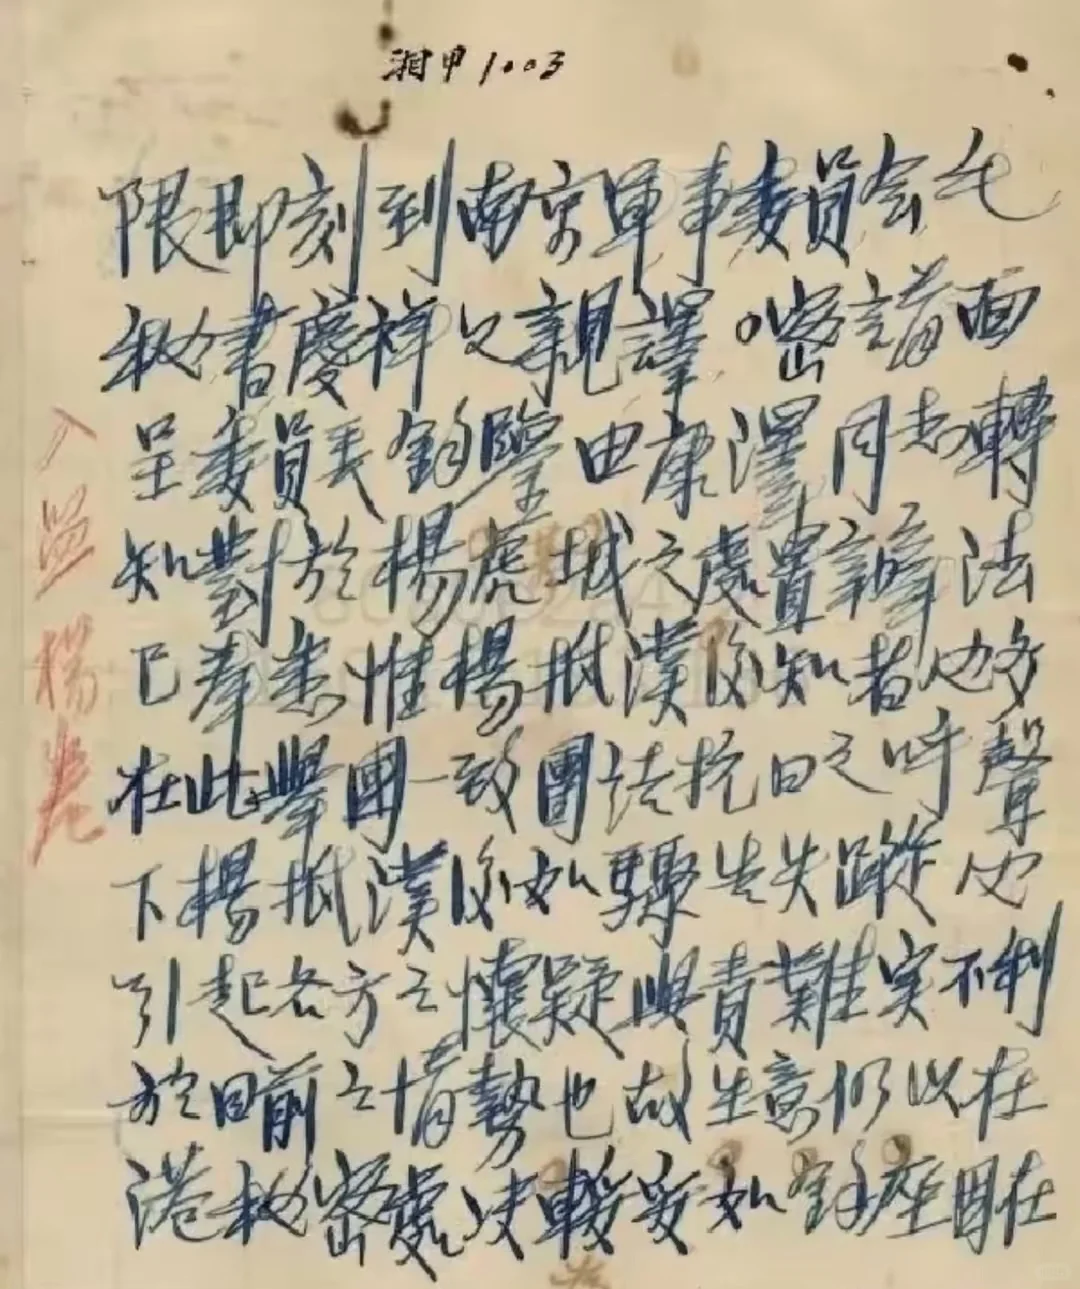 湘甲1003
限即刻到南京軍事委員会毛
秘書慶祥父親譯。密請面
呈委員長鈞鑒由康澤同志轉
知對於楊虎城之處置辦法
已奉悉惟楊抵漢後知者必多
在此舉國一致團結抗日之呼聲
下楊抵漢後如驟告失踪必
引起各方之懷疑與責難実不利
於目前之情勢也故生意仍以在
港秘密處决較妥如鈞座因在
入巡 楊